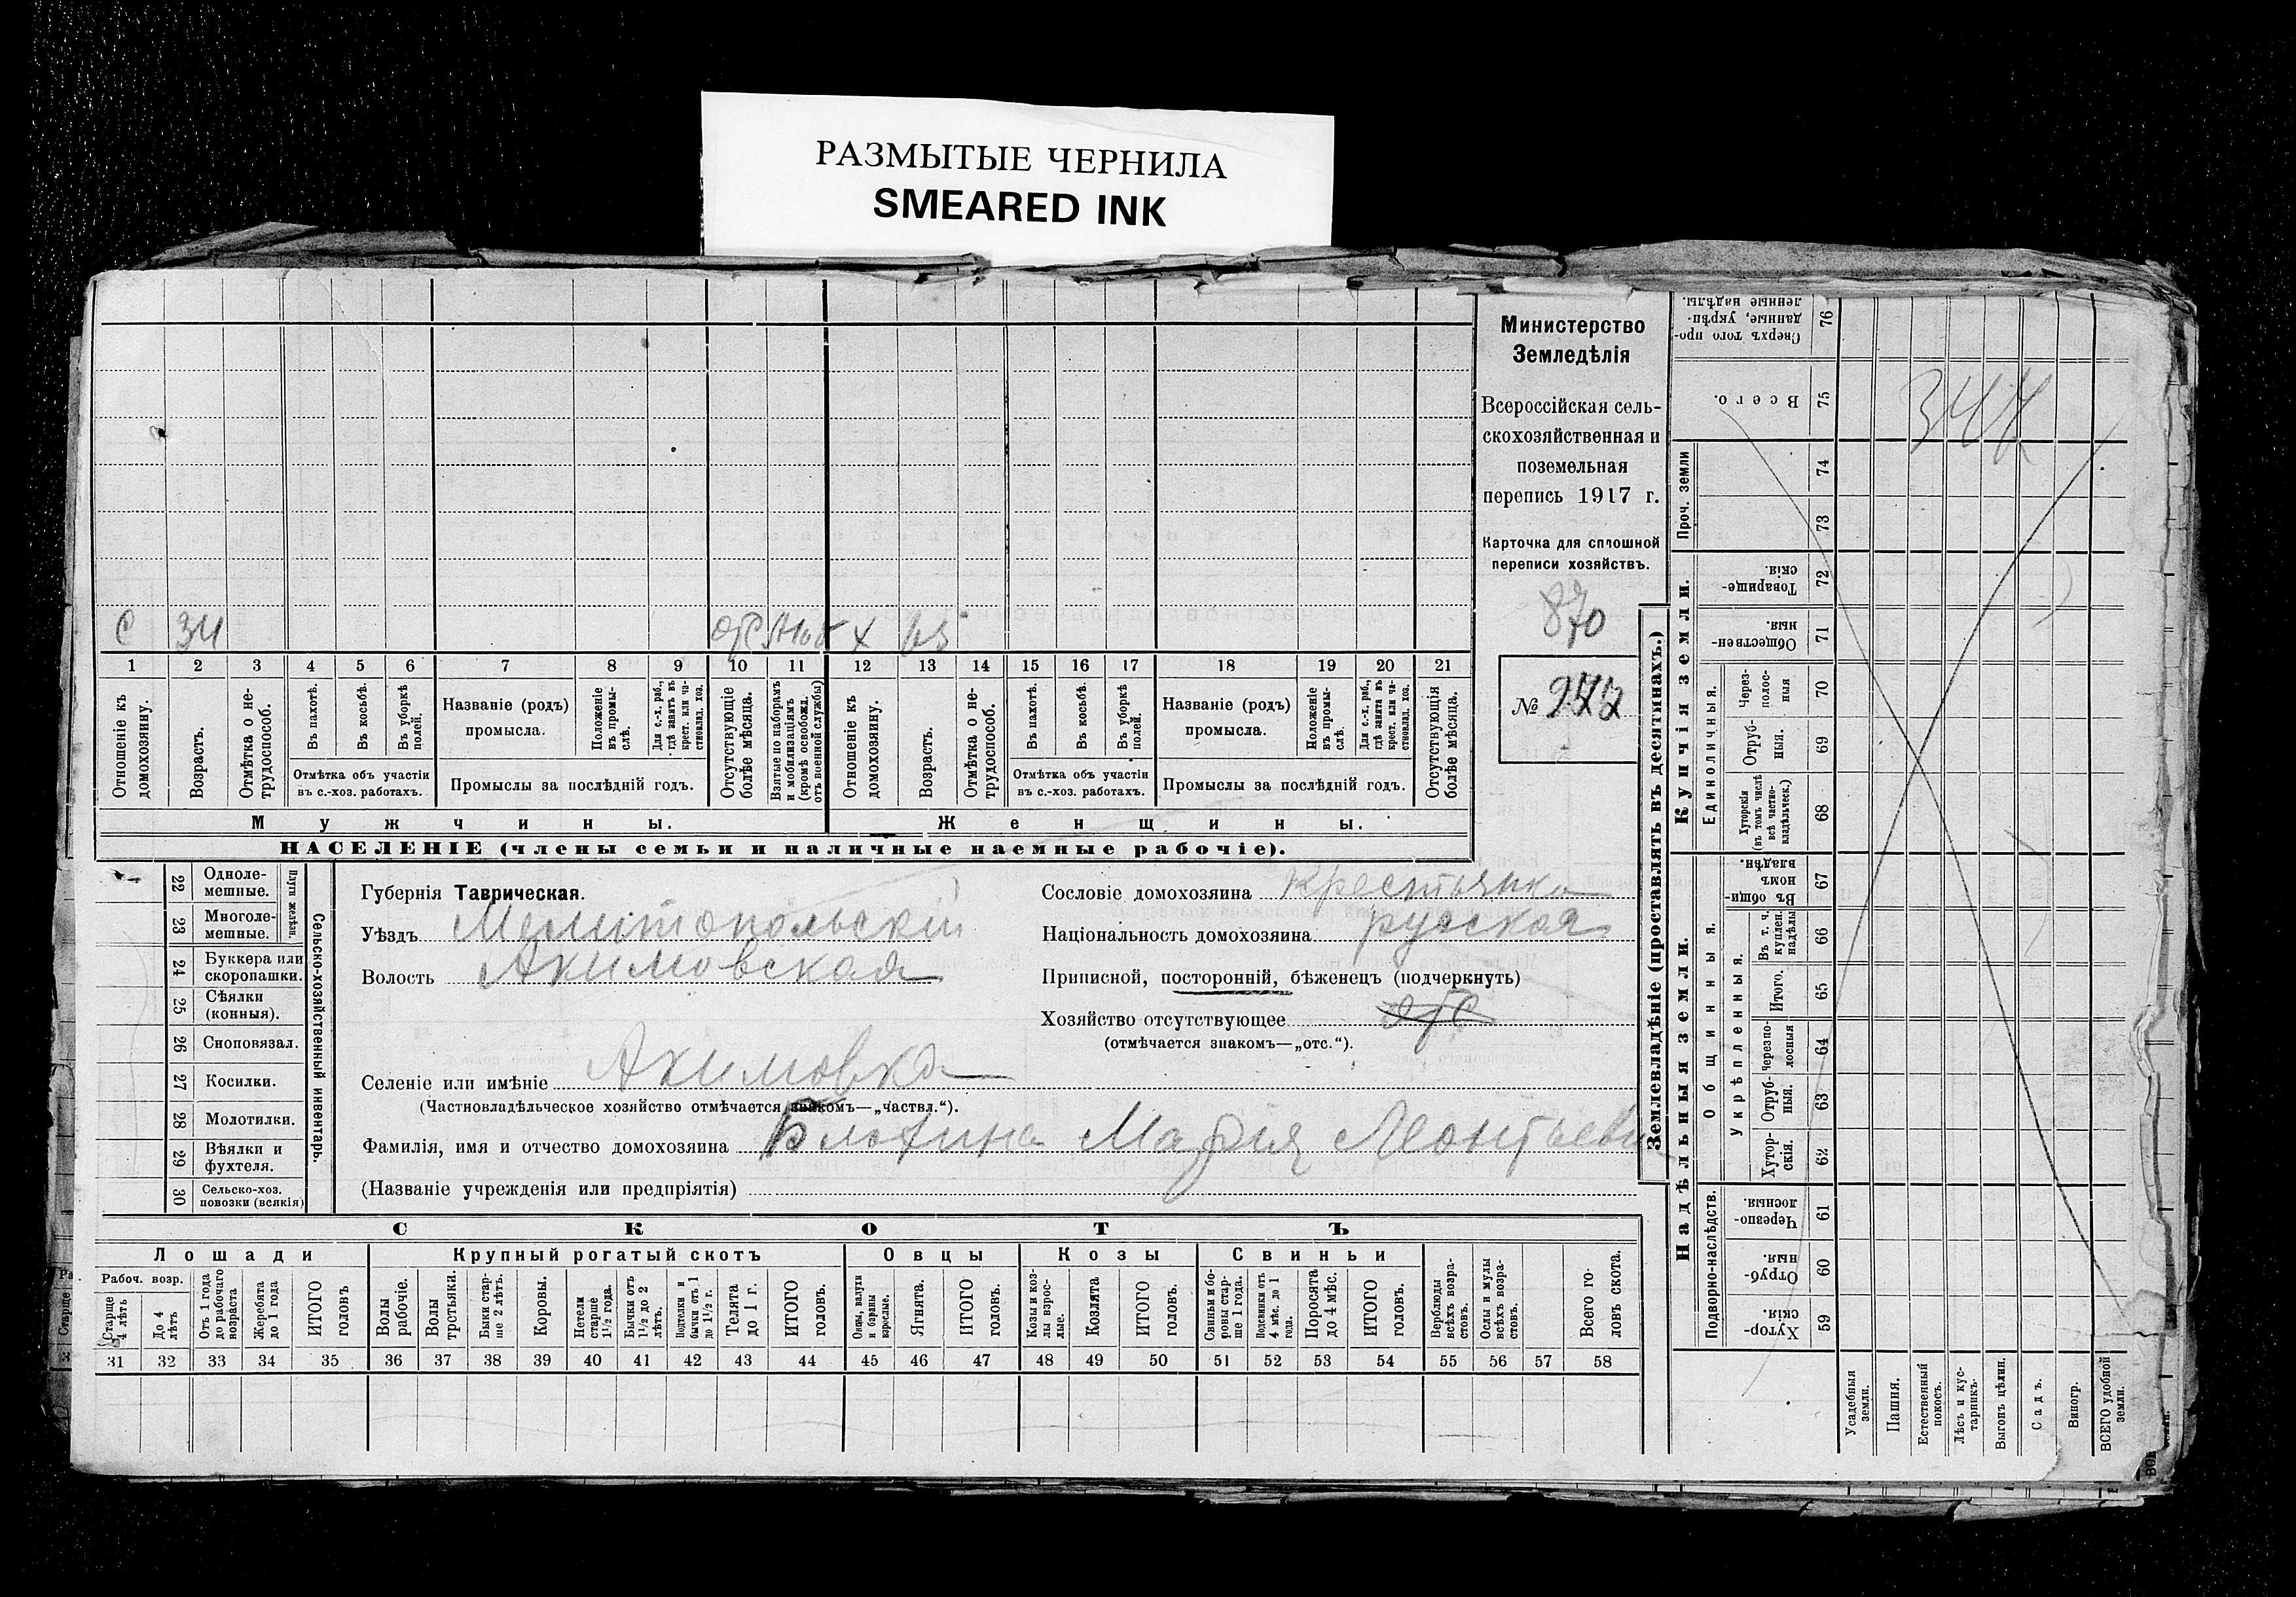 РАЗМЫТЫЕ ЧЕРНИЛА
SMEARED INK
Министерство
Земледѣлія
Всероссійская сель-
скохозяйственная и
поземельная
перепись 1917 г.
Карточка для сплошной
переписи хозяйствъ.
870
№
С 34 отс моб х 65
1 2 3 4 5 6 7 8 9 10 11 12 13 14 15 16 17 18 19 20 21
Отношеніе къ домохозяину.
Возрастъ.
Отмѣтка о не-трудоспособ.
Въ пахотѣ.
Въ косьбѣ.
Въ уборкѣ полей.
Отмѣтка объ участіи
въ с.-хоз. работахъ.
Названіе (родъ)
промысла.
Положеніе въ промы-слѣ.
Для с.-х. раб., гдѣ занятъ въ крест. или ча-стновлад. хоз.
Промыслы за послѣдній годъ.
Отсутствующіе болѣе мѣсяца.
Взятые по наборамъ и мобилизаціямъ (кромѣ освобожд. отъ военной службы)
Отношеніе къ домохозяину.
Возрастъ.
Отмѣтка о не-трудоспособ.
Въ пахотѣ.
Въ косьбѣ.
Въ уборкѣ полей.
Отмѣтка объ участіи
въ с.-хоз. работахъ.
Названіе (родъ)
промысла.
Положеніе въ промы-слѣ.
Для с.-х. раб., гдѣ занята въ крест. или ча-стновлад. хоз.
Промыслы за послѣдній годъ.
Отсутствующія болѣе мѣсяца.
Мужчины. Женщины.
НАСЕЛЕНІЕ (члены семьи и наличные наемные рабочіе).
22 Одноле-мешные.
23 Многоле-мешные.
Плуги желѣзн.
24 Буккера или скоропашки.
25 Сѣялки (конныя).
26 Сноповязал.
27 Косилки.
28 Молотилки.
29 Вѣялки и фухтеля.
30 Сельско-хоз. повозки (всякія)
Сельско-хозяйственный инвентарь.
Губернія Таврическая.
Уѣздъ Мелитопольскій
Волость Акимовская
Селеніе или имѣніе Акимовка
(Частновладѣльческое хозяйство отмѣчается знакомъ—„частвл.“).
Фамилія, имя и отчество домохозяина Мария Леонтьевн
(Названіе учрежденія или предпріятія)
Сословіе домохозяина Крестьянка
Національность домохозяина русская
Приписной, посторонній, бѣженецъ (подчеркнуть)
Хозяйство отсутствующее отс
(отмѣчается знакомъ—„отс.“).
СКОТЪ
Лошади Крупный рогатый скотъ Овцы Козы Свиньи
Рабоч. возр.
Старше 4 лѣтъ
До 4 лѣтъ
Отъ 1 года до рабочаго возраста
Жеребята до 1 года
ИТОГО головъ
Волы рабочіе.
Волы третьяки.
Быки стар-ше 2 лѣтъ.
Коровы.
Нетели старше 1½ года.
Бычки отъ 1½ до 2 лѣтъ.
Подтелки и бычки отъ 1 до 1½ г.
Телята до 1 г.
ИТОГО головъ.
Овцы, валухи и бараны взрослые.
Ягнята.
ИТОГО головъ.
Козы и коз-лы взрос-лые.
Козлята
ИТОГО головъ.
Свиньи и бо-ровы стар-ше 1 года.
Подсвинки отъ 4 мѣс. до 1 года.
Поросята до 4 мѣс.
ИТОГО головъ.
Верблюды всѣхъ возра-стовъ.
Ослы и мулы всѣхъ возра-стовъ.
Всего го-ловъ скота.
31 32 33 34 35 36 37 38 39 40 41 42 43 44 45 46 47 48 49 50 51 52 53 54 55 56 57 58
Землевладѣніе (проставлять въ десятинахъ.)
Купчія земли.
Надѣльныя земли.
Сверхъ того про-данные, укрѣп-ленные надѣлы. 76
Всего. 75
Проч. земли 74
73
Товарище-скія. 72
Обществен-ныя. 71
Единоличныя.
Через-полос-ныя 70
Отруб-ныя. 69
Хуторскія (въ томъ числѣ всѣ частно-владѣльческ.) 68
Общинныя.
Въ общин-номъ владѣн. 67
Укрѣпленныя.
Въ т. ч. куплен. надѣлы 66
Итого. 65
Черезпо-лосныя 64
Отруб-ныя. 63
Хутор-скія. 62
Подворно-наслѣдств.
Черезпо-лосныя 61
Отруб-ныя. 60
Хутор-скія. 59
Усадебныя земли.
Пашня.
Естественный покосъ.
Лѣсъ и кус-тарникъ.
Выгонъ цѣлин.
Садъ.
Виногр.
ВСЕГО удобной земли.